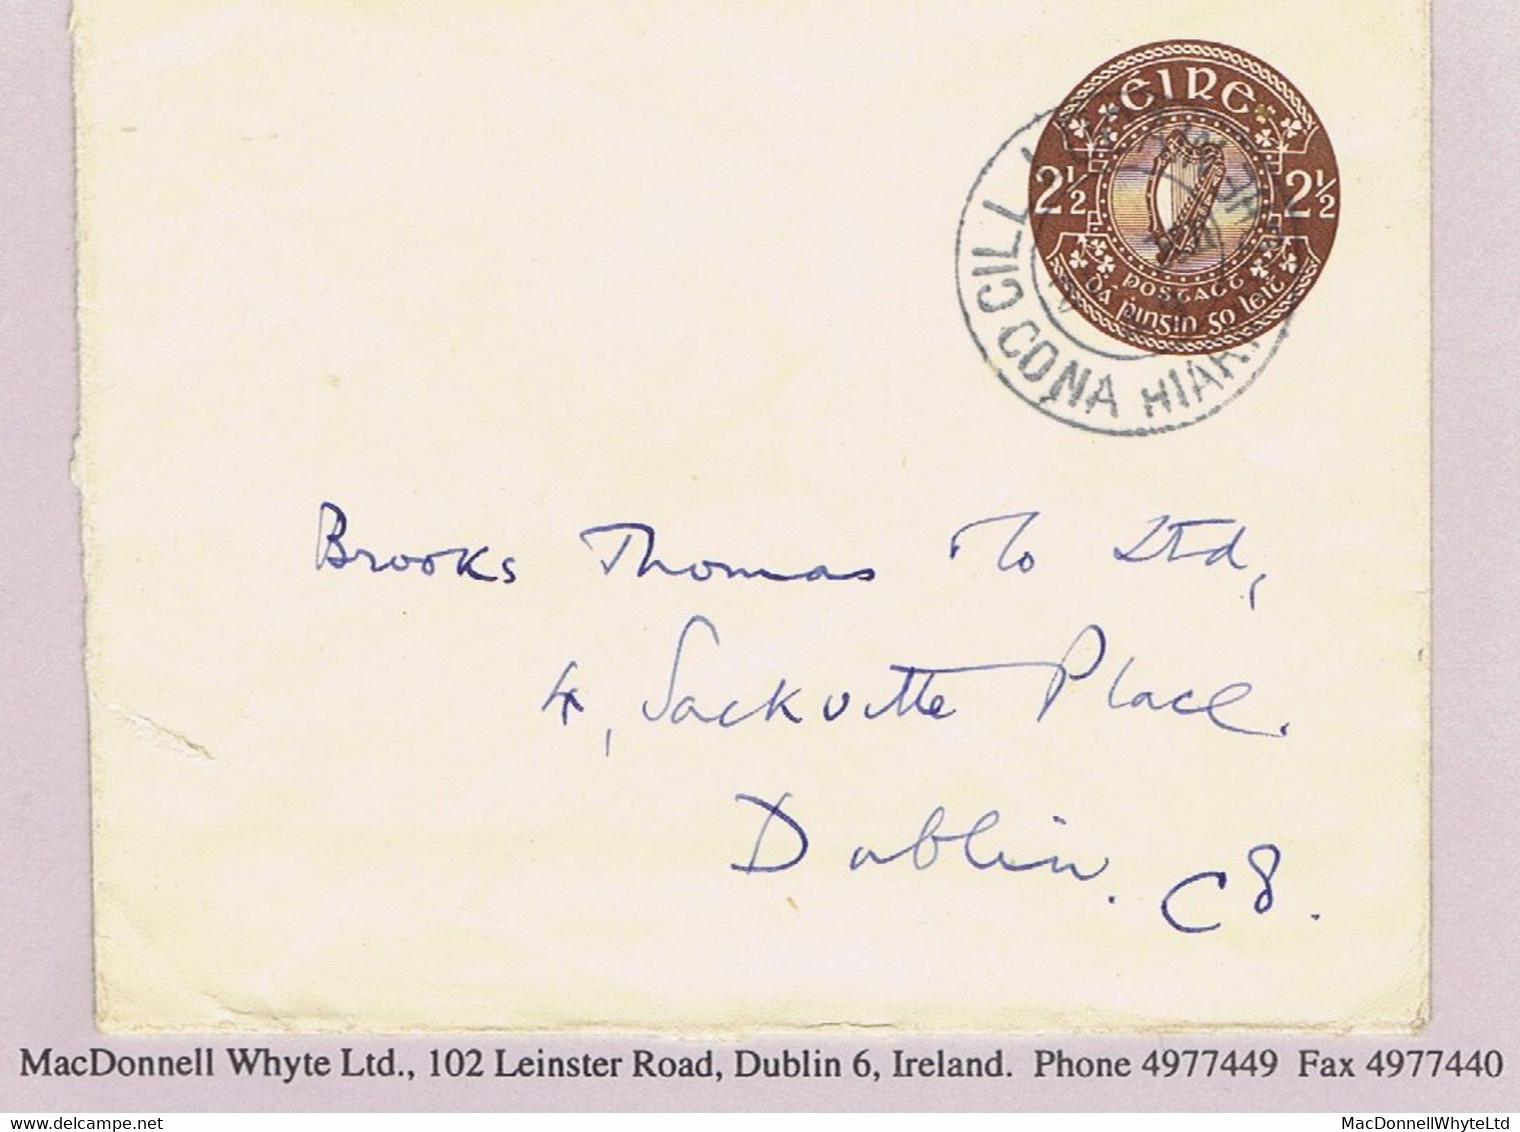 EIRE
2½ 2½
postage
dá pingin go leit
CILL
CO NA HIAR
Brooks Thomas & Co Ltd,
4, Sackville Place.
Dublin. C8.
MacDonnell Whyte Ltd., 102 Leinster Road, Dublin 6, Ireland. Phone 4977449 Fax 4977440
delcampe.net
MacDonnellWhyteLtd